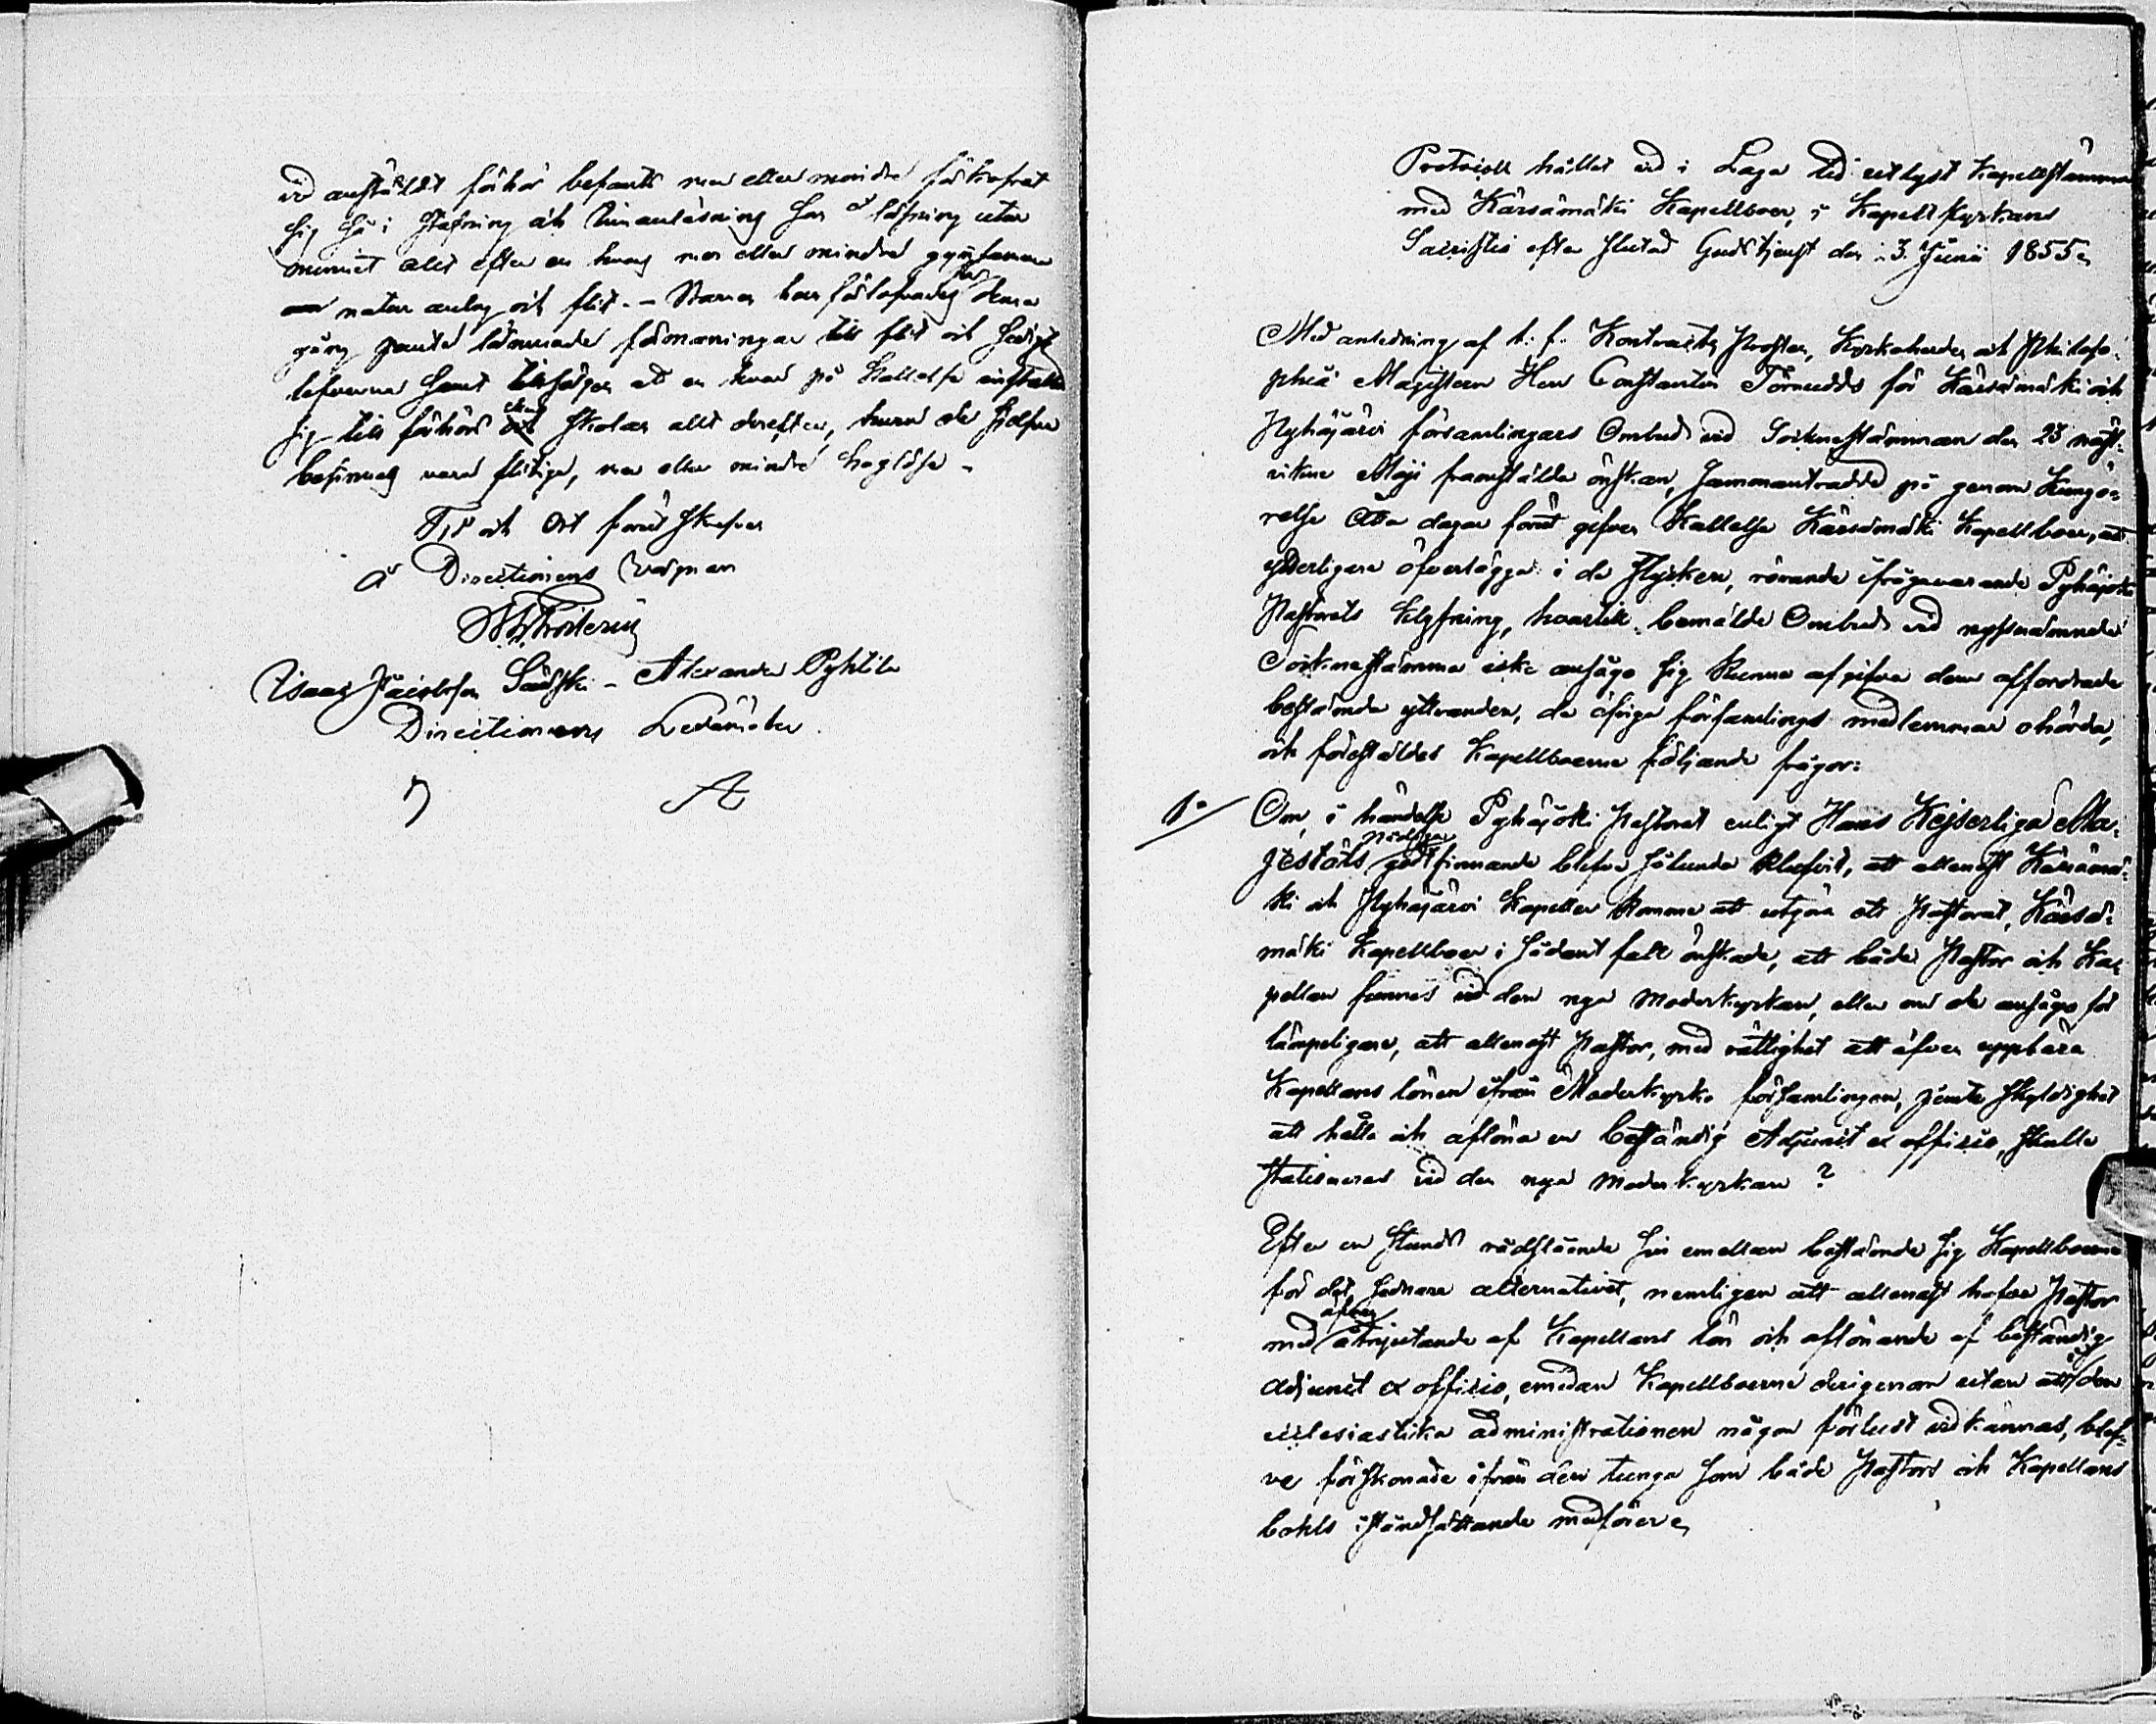 vid anstäldt förhör befants mer eller mindre förkofrat
sig så i stafning och innanläsning som i läsning utur
minnet allt efter en hvars mer eller mindre gynsamma
natur anlag och flit. – Barnen hemförlofvades för denna
gång jemte lämnade förmaningar till flit och sedigt
lefverne samt tillsägen att en hvar på kallelse inställa
sig till förhör skolar allt derefter, huru de sjelfve
befinnas vara flitige, mer eller mindre hoglöse –
Tid och Ort förut skrefven
å Directionens vägnar
Isaac Jacobsson Alexander Pyhtilä
Directionens Ledamöter.
Protocoll hållet vid i Laga tid utlyst Kapellstämma
med Kärsämäki Kapellboer, i Kapell kyrkans
Sacristia efter slutad Gudstjenst den 3. Junii 1855.
Med anledning af t. f. Kontracts Prosten, Kyrkoherden och Philoso-
phiæ Magistern Herr Constantin Törnudds för Kärsämäki och
Pyhäjärvi församlingars Ombud vid Sockenstämman den 28 näst-
vikne Maji framstälda önskan, sammanträdde på genom Kungö-
relse åtta dagar förut gifven Kallelse Kärsämäki Kapellboer, att
ytterligare öfverlägga i de stycken, rörande ifrågavarande Pyhäjoki
Pastorats klyfning, hvartill bemälde Ombud vid nyssnämnde
Sockenstämma icke ansågo sig kunna afgifva dem affordrade
bestämda yttranden, de öfriga församlings medlemmar ohörda,
och förestäldes Kapellboerne följande frågor:
1o Om, i händelse Pyhäjoki Pastorat enligt Hans Kejserliga Ma-
jestäts nådiga godtfinnande blefve sålunda klufvit, att allenast Kärsämä-
ki och Pyhäjärvi Kapeller komme att utgöra ett Pastorat, Kärsä-
mäki Kapellboer i sådant fall önskade, att både Pastor och Ka-
pellan funnes vid den nya moderkyrkan, eller om de ansågo för
lämpligare, att allenast Pastor, med rättighet att äfven uppbära
Kapellans lönen ifrån Moderkyrko församlingen, jemte skyldighet
att hålla och aflöna en beständig Adjunct ex officio, skulle
stationeras vid den nya moderkyrkan?
Efter en stunds rådslående sin emellan bestämde sig Kapellboerne
för det sednare alternativet, nemligen att allenast hafva Pastor
med äfven åtnjutande af Kapellans lön och aflönande af beständig
adjunct ex officio, emedan Kapellboerne derigenom utan att i den
ecclesiastika administrationen någon förlust vidkännas, blef-
ve förskonade ifrån den tunga som både Pastors och Kapellans
bohls iståndsättande medförer.